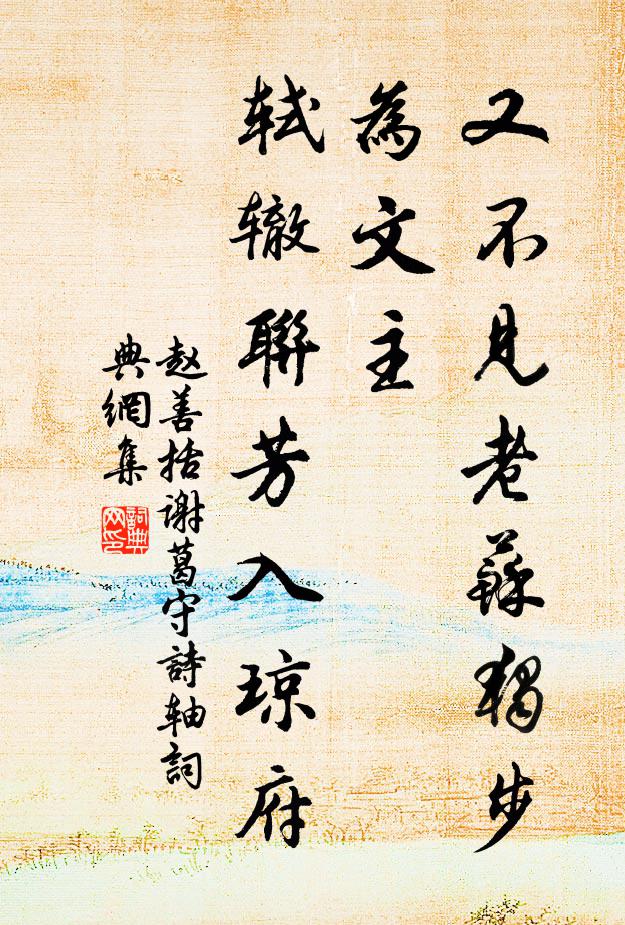 又不见老蘇獨步
為文主
轼辙聯芳入琼府
赵善括谢葛守詩轴詞
典網集
詞典網印